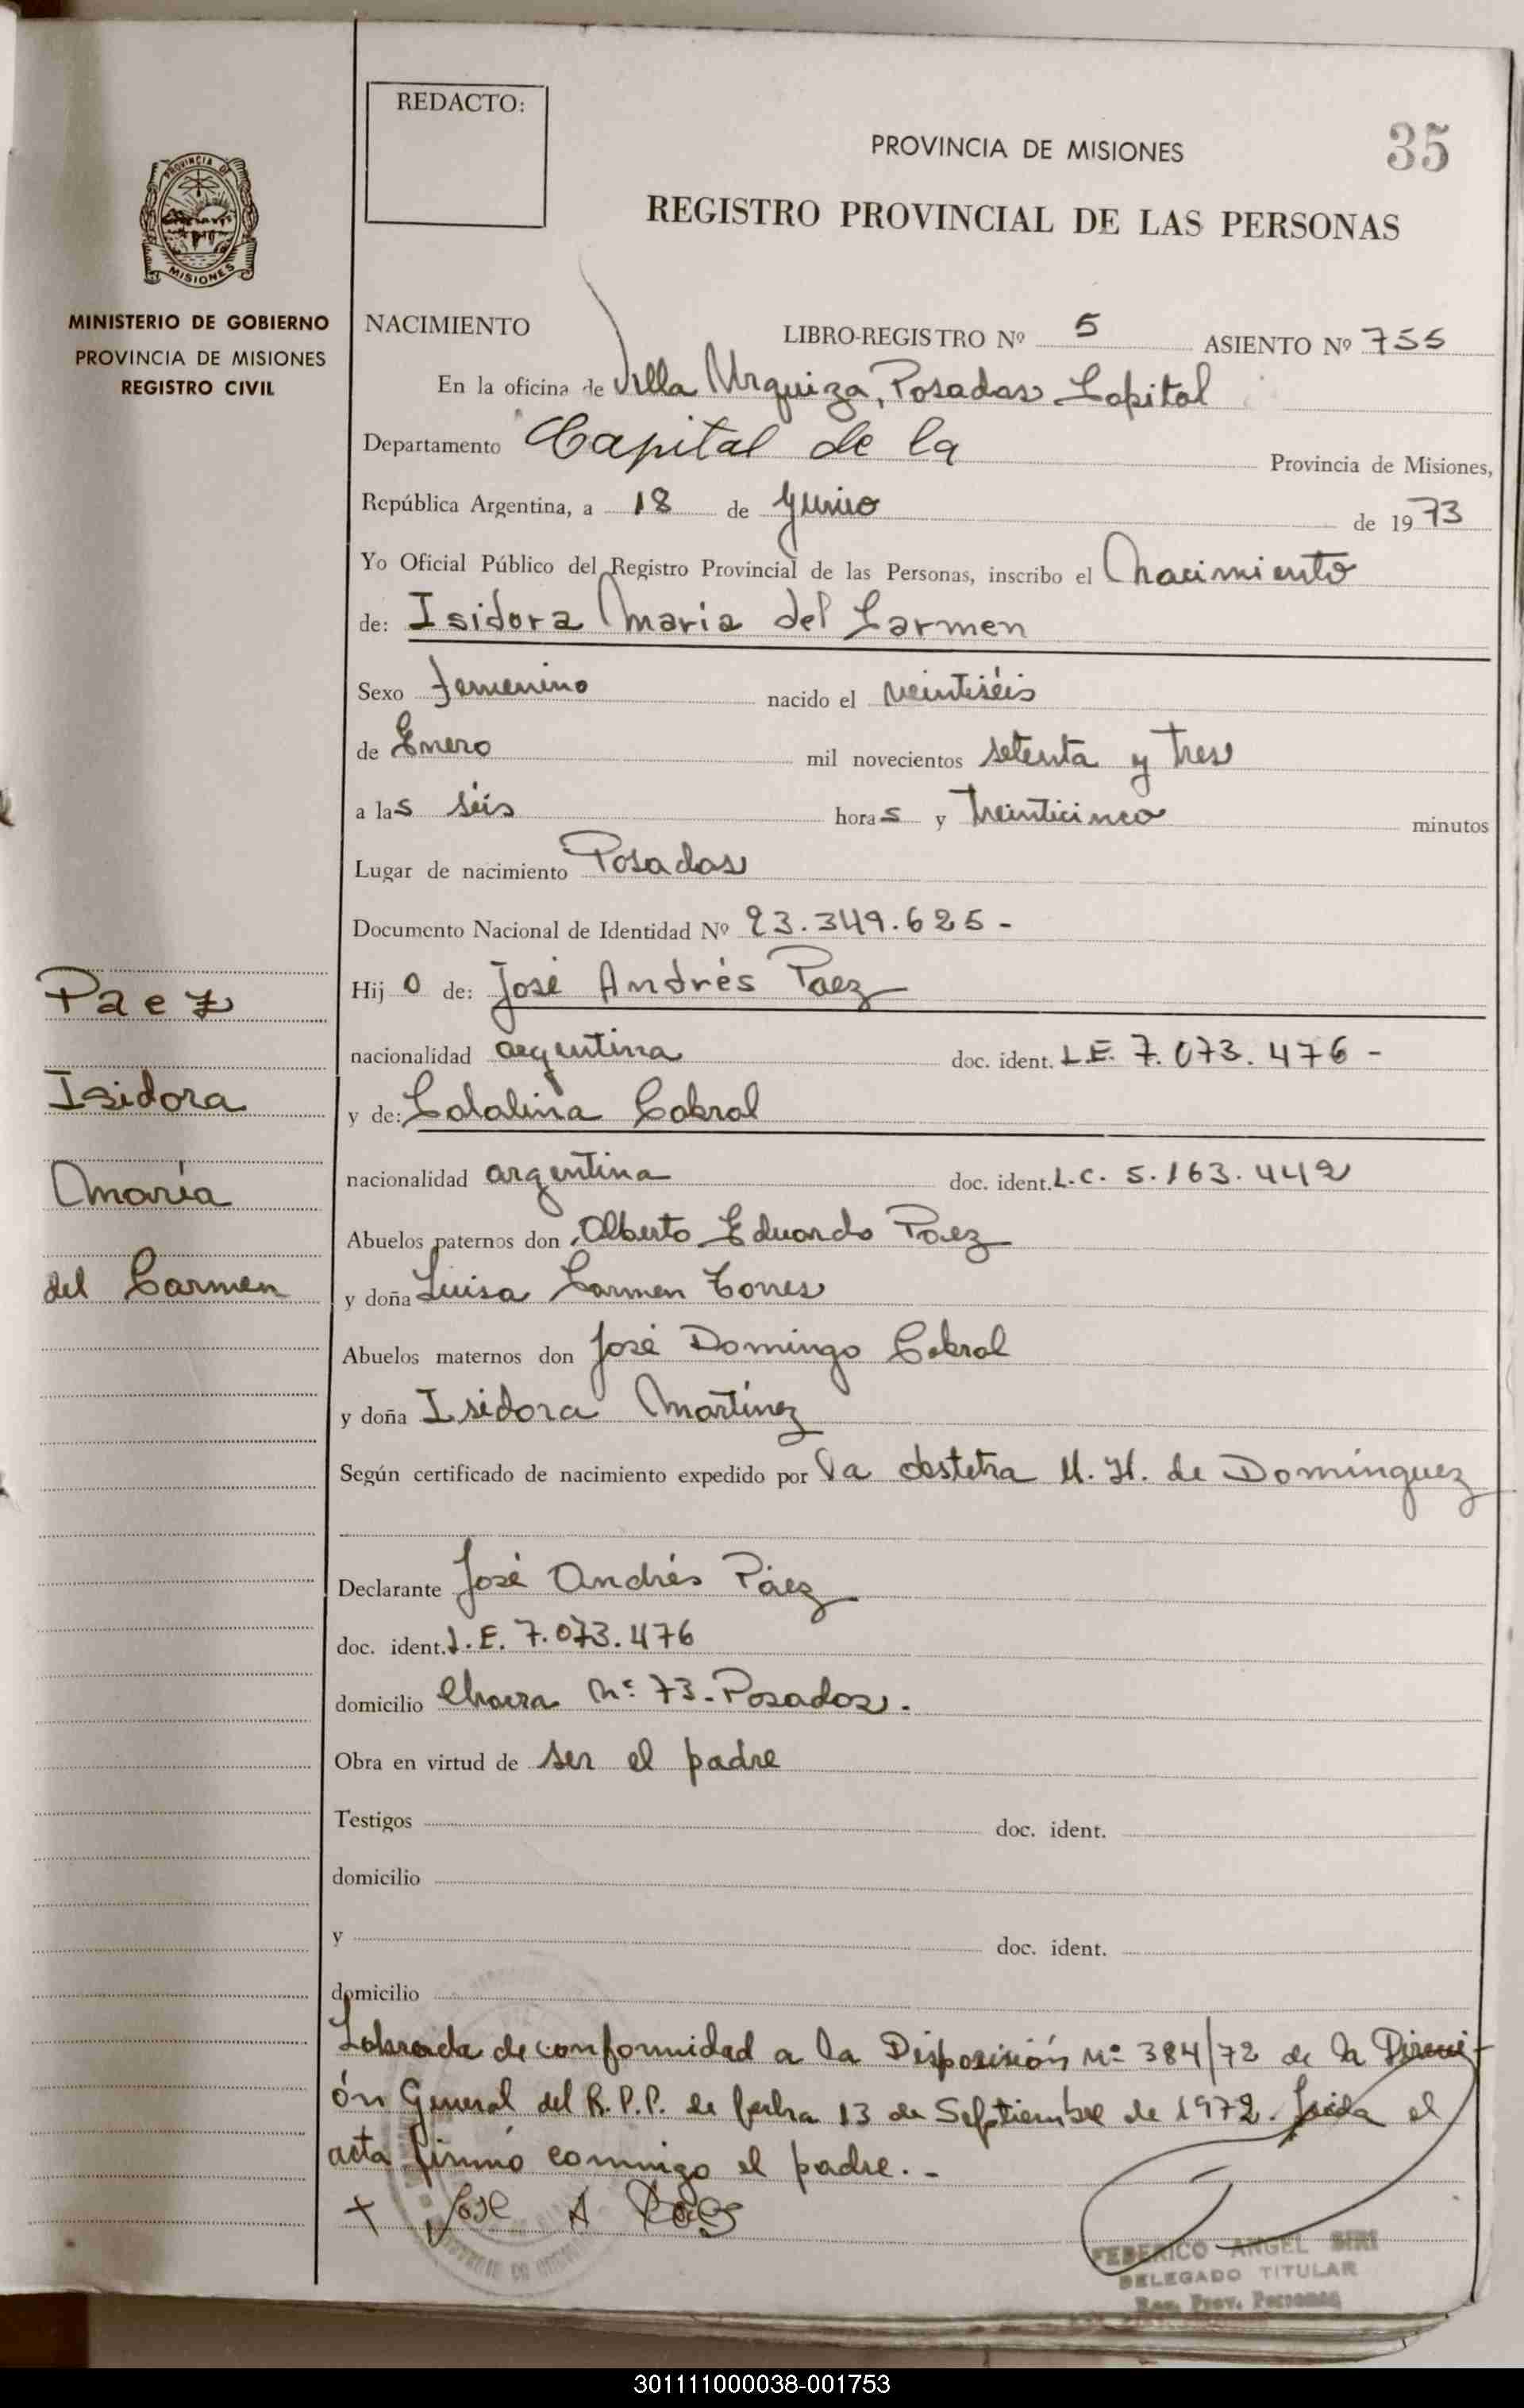 REDACTO:
PROVINCIA DE MISIONES
35
REGISTRO PROVINCIAL DE LAS PERSONAS
PROVINCIA DE
MISIONES
MINISTERIO DE GOBIERNO
PROVINCIA DE MISIONES
REGISTRO CIVIL
NACIMIENTO
LIBRO-REGISTRO Nº 5 ASIENTO Nº 755
En la oficina de Villa Urquiza, Posadas Capital
Departamento Capital de la Provincia de Misiones,
República Argentina, a 18 de Junio de 1973
Yo Oficial Público del Registro Provincial de las Personas, inscribo el Nacimiento
de: Isidora Maria del Carmen
Sexo femenino nacido el veintiséis
de Enero mil novecientos setenta y tres
a las séis horas y treinticinco minutos
Lugar de nacimiento Posadas
Documento Nacional de Identidad Nº 23.349.625-
Hijo de: José Andrés Paez
nacionalidad argentina doc. ident. L.E. 7.073.476-
y de: Catalina Cabral
nacionalidad argentina doc. ident. L.C. 5.163.442
Abuelos paternos don Alberto Eduardo Paez
y doña Luisa Carmen Torres
Abuelos maternos don José Domingo Cabral
y doña Isidora Martínez
Según certificado de nacimiento expedido por la obstetra M. H. de Domínguez
Declarante José Andrés Páez
doc. ident. L.E. 7.073.476
domicilio Chacra Nº 73-Posadas.
Obra en virtud de ser el padre
Testigos doc. ident.
domicilio
y doc. ident.
domicilio
Labrada de conformidad a la Disposición Nº 384/72 de la Direcci-
ón General del R.P.P. de fecha 13 de Septiembre de 1972. Leida el
acta firmó conmigo el padre.-
+ José A Paez
FEDERICO ANGEL SIRI
DELEGADO TITULAR
Reg. Prov. Personas
Paez
Isidora
María
del Carmen
301111000038-001753